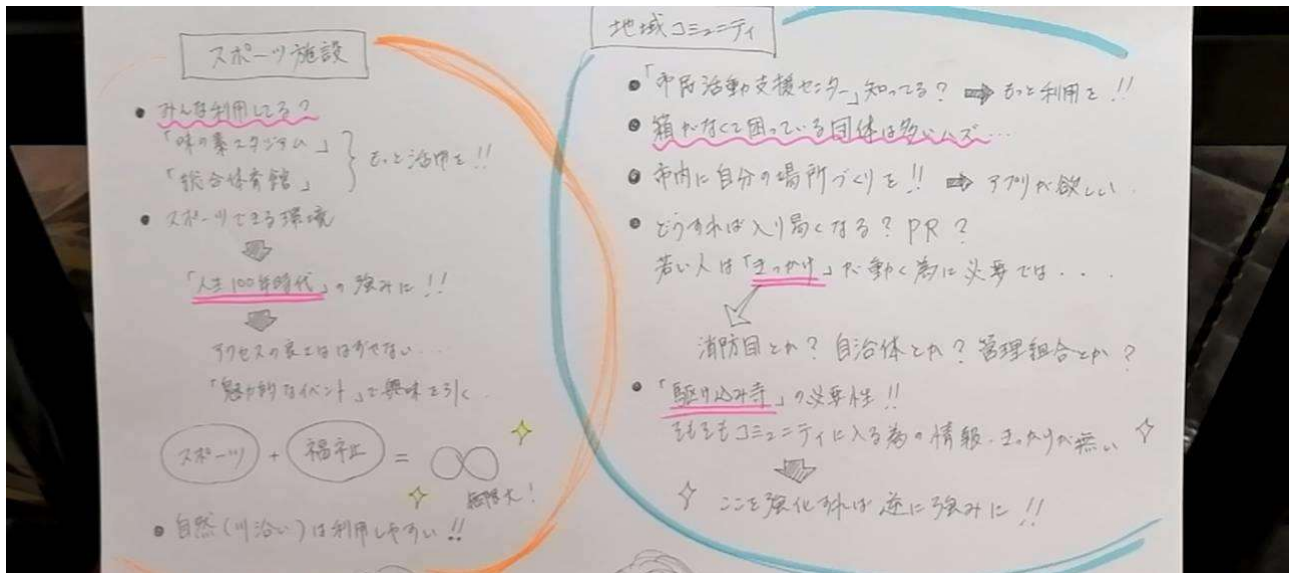 スポーツ施設
● みんな利用してる?
「味の素スタジアム」
「総合体育館」
もっと活用を!!
● スポーツできる環境
「人生100年時代」の強みに!!
アクセスの良さははずせない...
「魅力的なイベント」で興味を引く.
スポーツ + 福祉 = ∞
無限大!
● 自然(川沿い)は利用しやすい!!
地域コミュニティ
● 「市民活動支援センター」知ってる? ➡ もっと利用を!!
● 箱がなくて困っている団体は多いハズ...
● 市内に自分の場所づくりを!! ➡ アプリが欲しい.
● どうすれば入り易くなる? PR?
若い人は「きっかけ」が動く為に必要では...
消防団とか? 自治体とか? 管理組合とか?
● 「駆け込み寺」の必要性!!
そもそもコミュニティに入る為の情報・きっかけが無い
ここを強化すれば逆に強みに!!